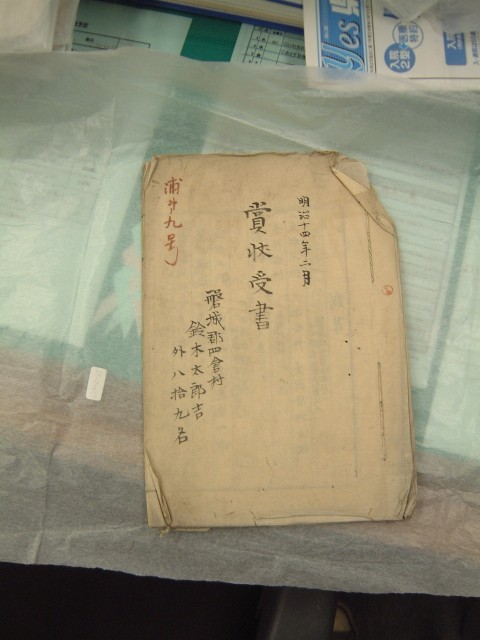 明治十四年二月
賞状受書
磐城郡四倉村
鈴木太郎吉
外八拾九名
浦廿九号
Yes
入院
2型
入